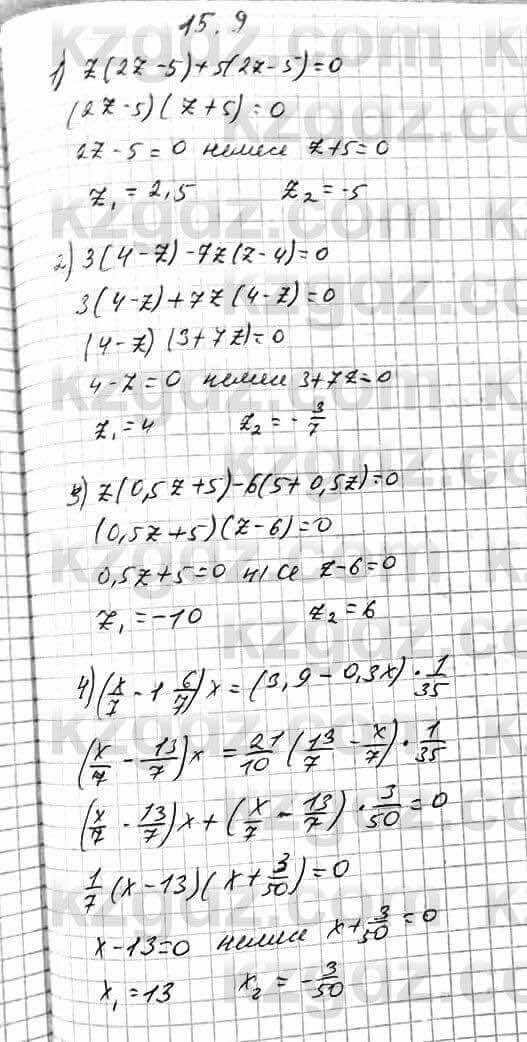 15.9
1) z(2z-5)+5(2z-5)=0
(2z-5)(z+5)=0
2z-5=0 немесе z+5=0
z₁=2,5 z₂=-5
2) 3(4-z)-7z(z-4)=0
3(4-z)+7z(4-z)=0
(4-z)(3+7z)=0
4-z=0 немесе 3+7z=0
z₁=4 z₂=-3/7
3) z(0,5z+5)-6(5+0,5z)=0
(0,5z+5)(z-6)=0
0,5z+5=0 н/се z-6=0
z₁=-10 z₂=6
4) (x/7-1 6/7)x=(3,9-0,3x)·1/35
(x/7-13/7)x=21/10(13/7-x/7)·1/35
(x/7-13/7)x+(x/7-13/7)·3/50=0
1/7(x-13)(x+3/50)=0
x-13=0 немесе x+3/50=0
x₁=13 x₂=-3/50
kzgdz.com